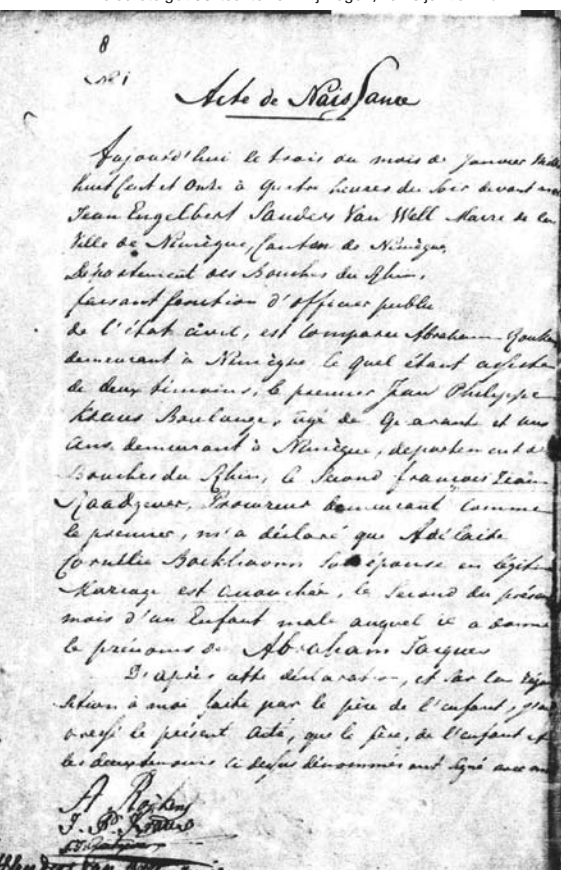 8
No 1
Acte de Naissance
Aujourd'hui le trois du mois de Janvier Mille
huit Cent et Onze à quatre heures du soir devant moi
Jean Engelbert Sanders Van Well Maire de la
Ville de Nimègue, Canton de Nimègue,
Département des Bouches du Rhin,
faisant fonction d'officier public
de l'état civil, est comparu Abraham
demeurant à Nimègue le quel étant assisté
de deux témoins, le premier Jean Philippe
Kraus Boulanger, agé de Quarante et un
ans demeurant à Nimègue, departement des
Bouches du Rhin, le Second françois
Raadgever, Procureur demeurant comme
le premier, m'a déclaré que Adelaide
Cornélie son épouse en légitime
Mariage est accouchée, le Second du présent
mois d'un Enfant male auquel il a donné
le prénoms de Abraham Jacques
D'après cette déclaration, et sur la réqui
sition à moi faite par le père de l'enfant, j'ai
dressé le présent Acte, que le père, de l'enfant et
les deux temoins ci dessus dénommés ont signé avec moi
A.
J. P. Kraus